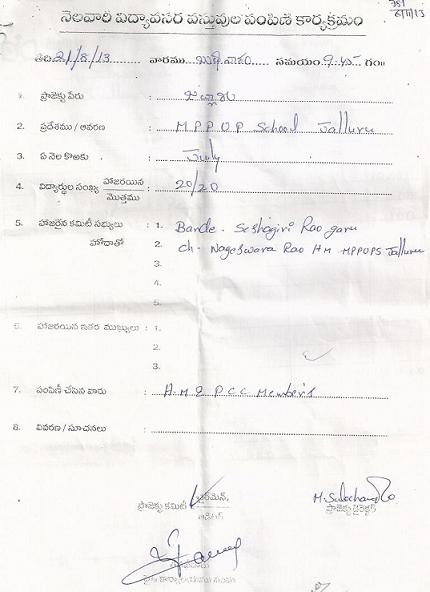 నెలవారి విద్యావసర వస్తువుల పంపిణి కార్యక్రమం
తేది 21/8/13 వారము బుధవారం సమయం 9.45 గం॥
1. ప్రాజెక్టు పేరు : జల్లూరు
2. ప్రదేశము / ఆవరణ : M P P U P School Jalluru
3. ఏ నెల కొఱకు : July
4. విద్యార్థుల సంఖ్య హాజరయిన / మొత్తము : 20/20
5. హాజరైన కమిటీ సభ్యులు : 1. Bande. Seshagiri Rao garu
హోదాతో 2. ch. Nageswara Rao HM MPPUPS Jalluru
3.
4.
5.
6. హాజరయిన ఇతర ముఖ్యులు : 1.
2.
3.
7. పంపిణీ చేసిన వారు : H.M & P C C Member's
8. వివరణ / సూచనలు :
ప్రాజెక్టు కమిటీ ఛైర్మెన్,
M. Sulochana
ప్రాజెక్టు డైరెక్టర్